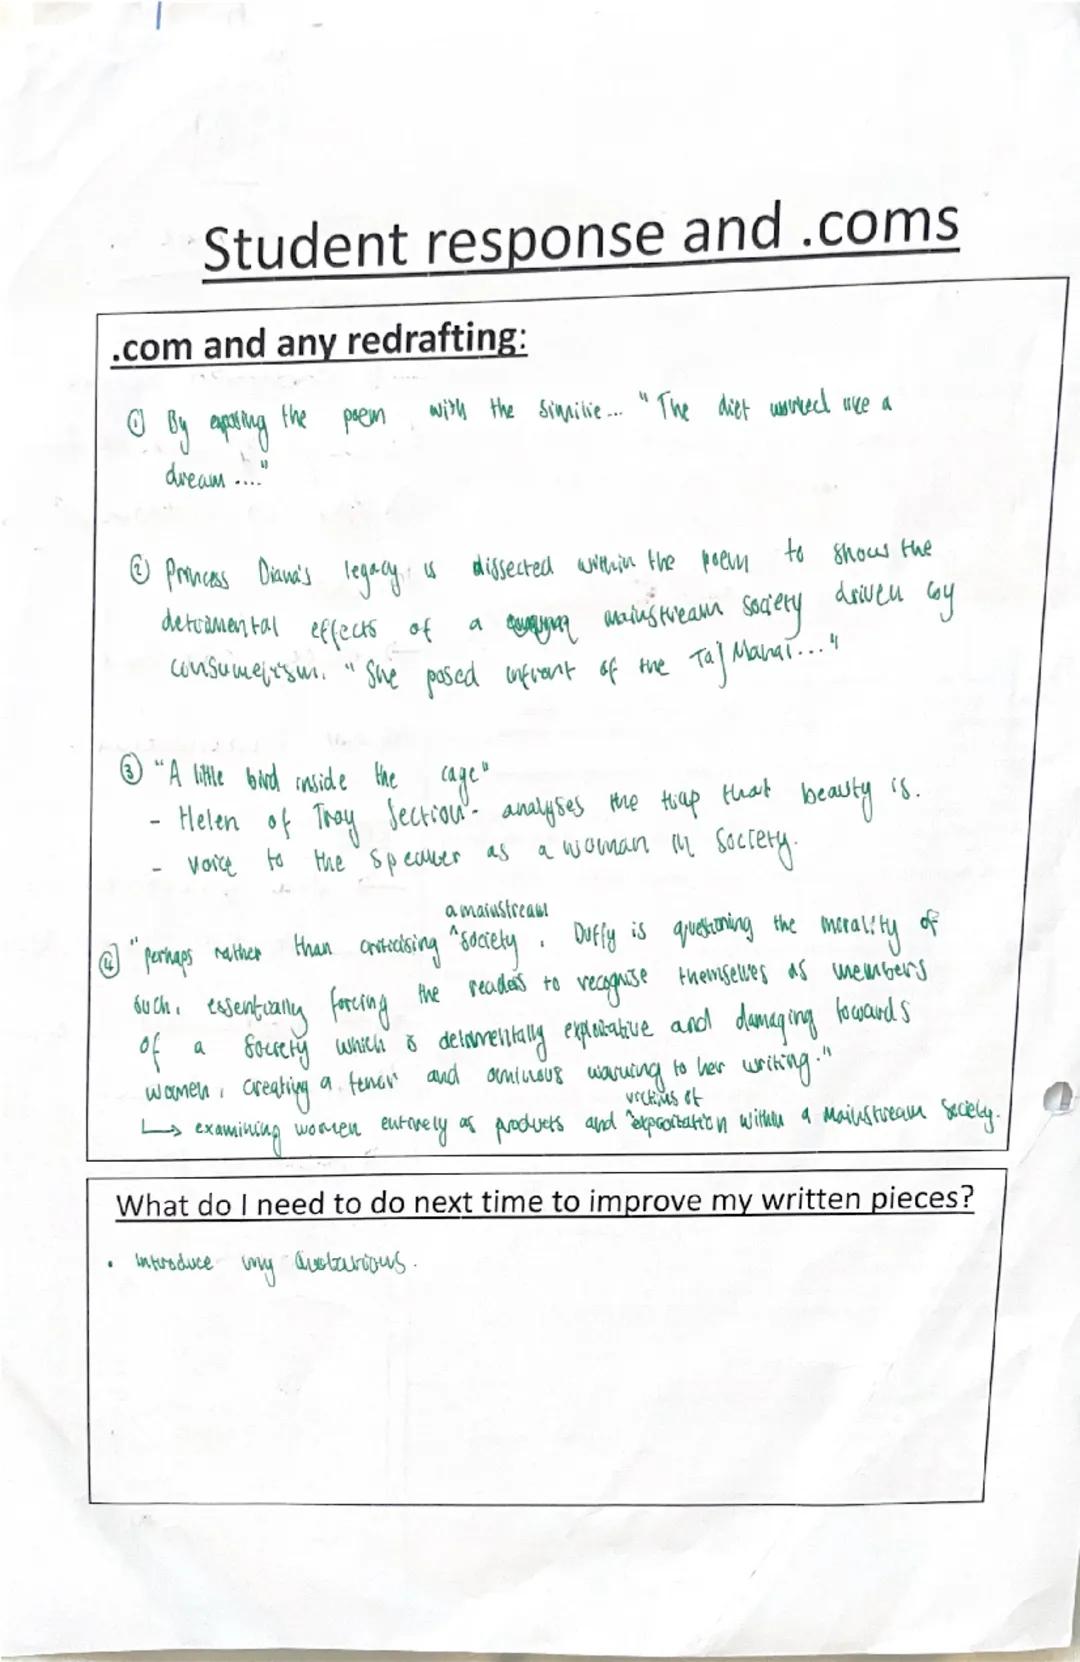 Student response and .coms
.com and any redrafting:
① By exposing the poem with the similie... "The diet worked like a
dream ...."
② Princess Diana's legacy is dissected within the poem to shows the
detrimental effects of a mainstream society driven by
consumerism. "She posed infront of the Taj Mahal..."
③ "A little bird inside the cage"
- Helen of Troy Section - analyses the trap that beauty is.
- voice to the speaker as a woman in society.
a mainstream
④ "perhaps rather than criticising ^society, Duffy is questioning the morality of
such, essentially forcing the readers to recognise themselves as members
of a society which is detrimentally exploitative and damaging towards
women, creating a tenor and ominous warning to her writing."
victims of
↳ examining women entirely as products and ^exploitation within a Mainstream Society.
What do I need to do next time to improve my written pieces?
• introduce my quotations.